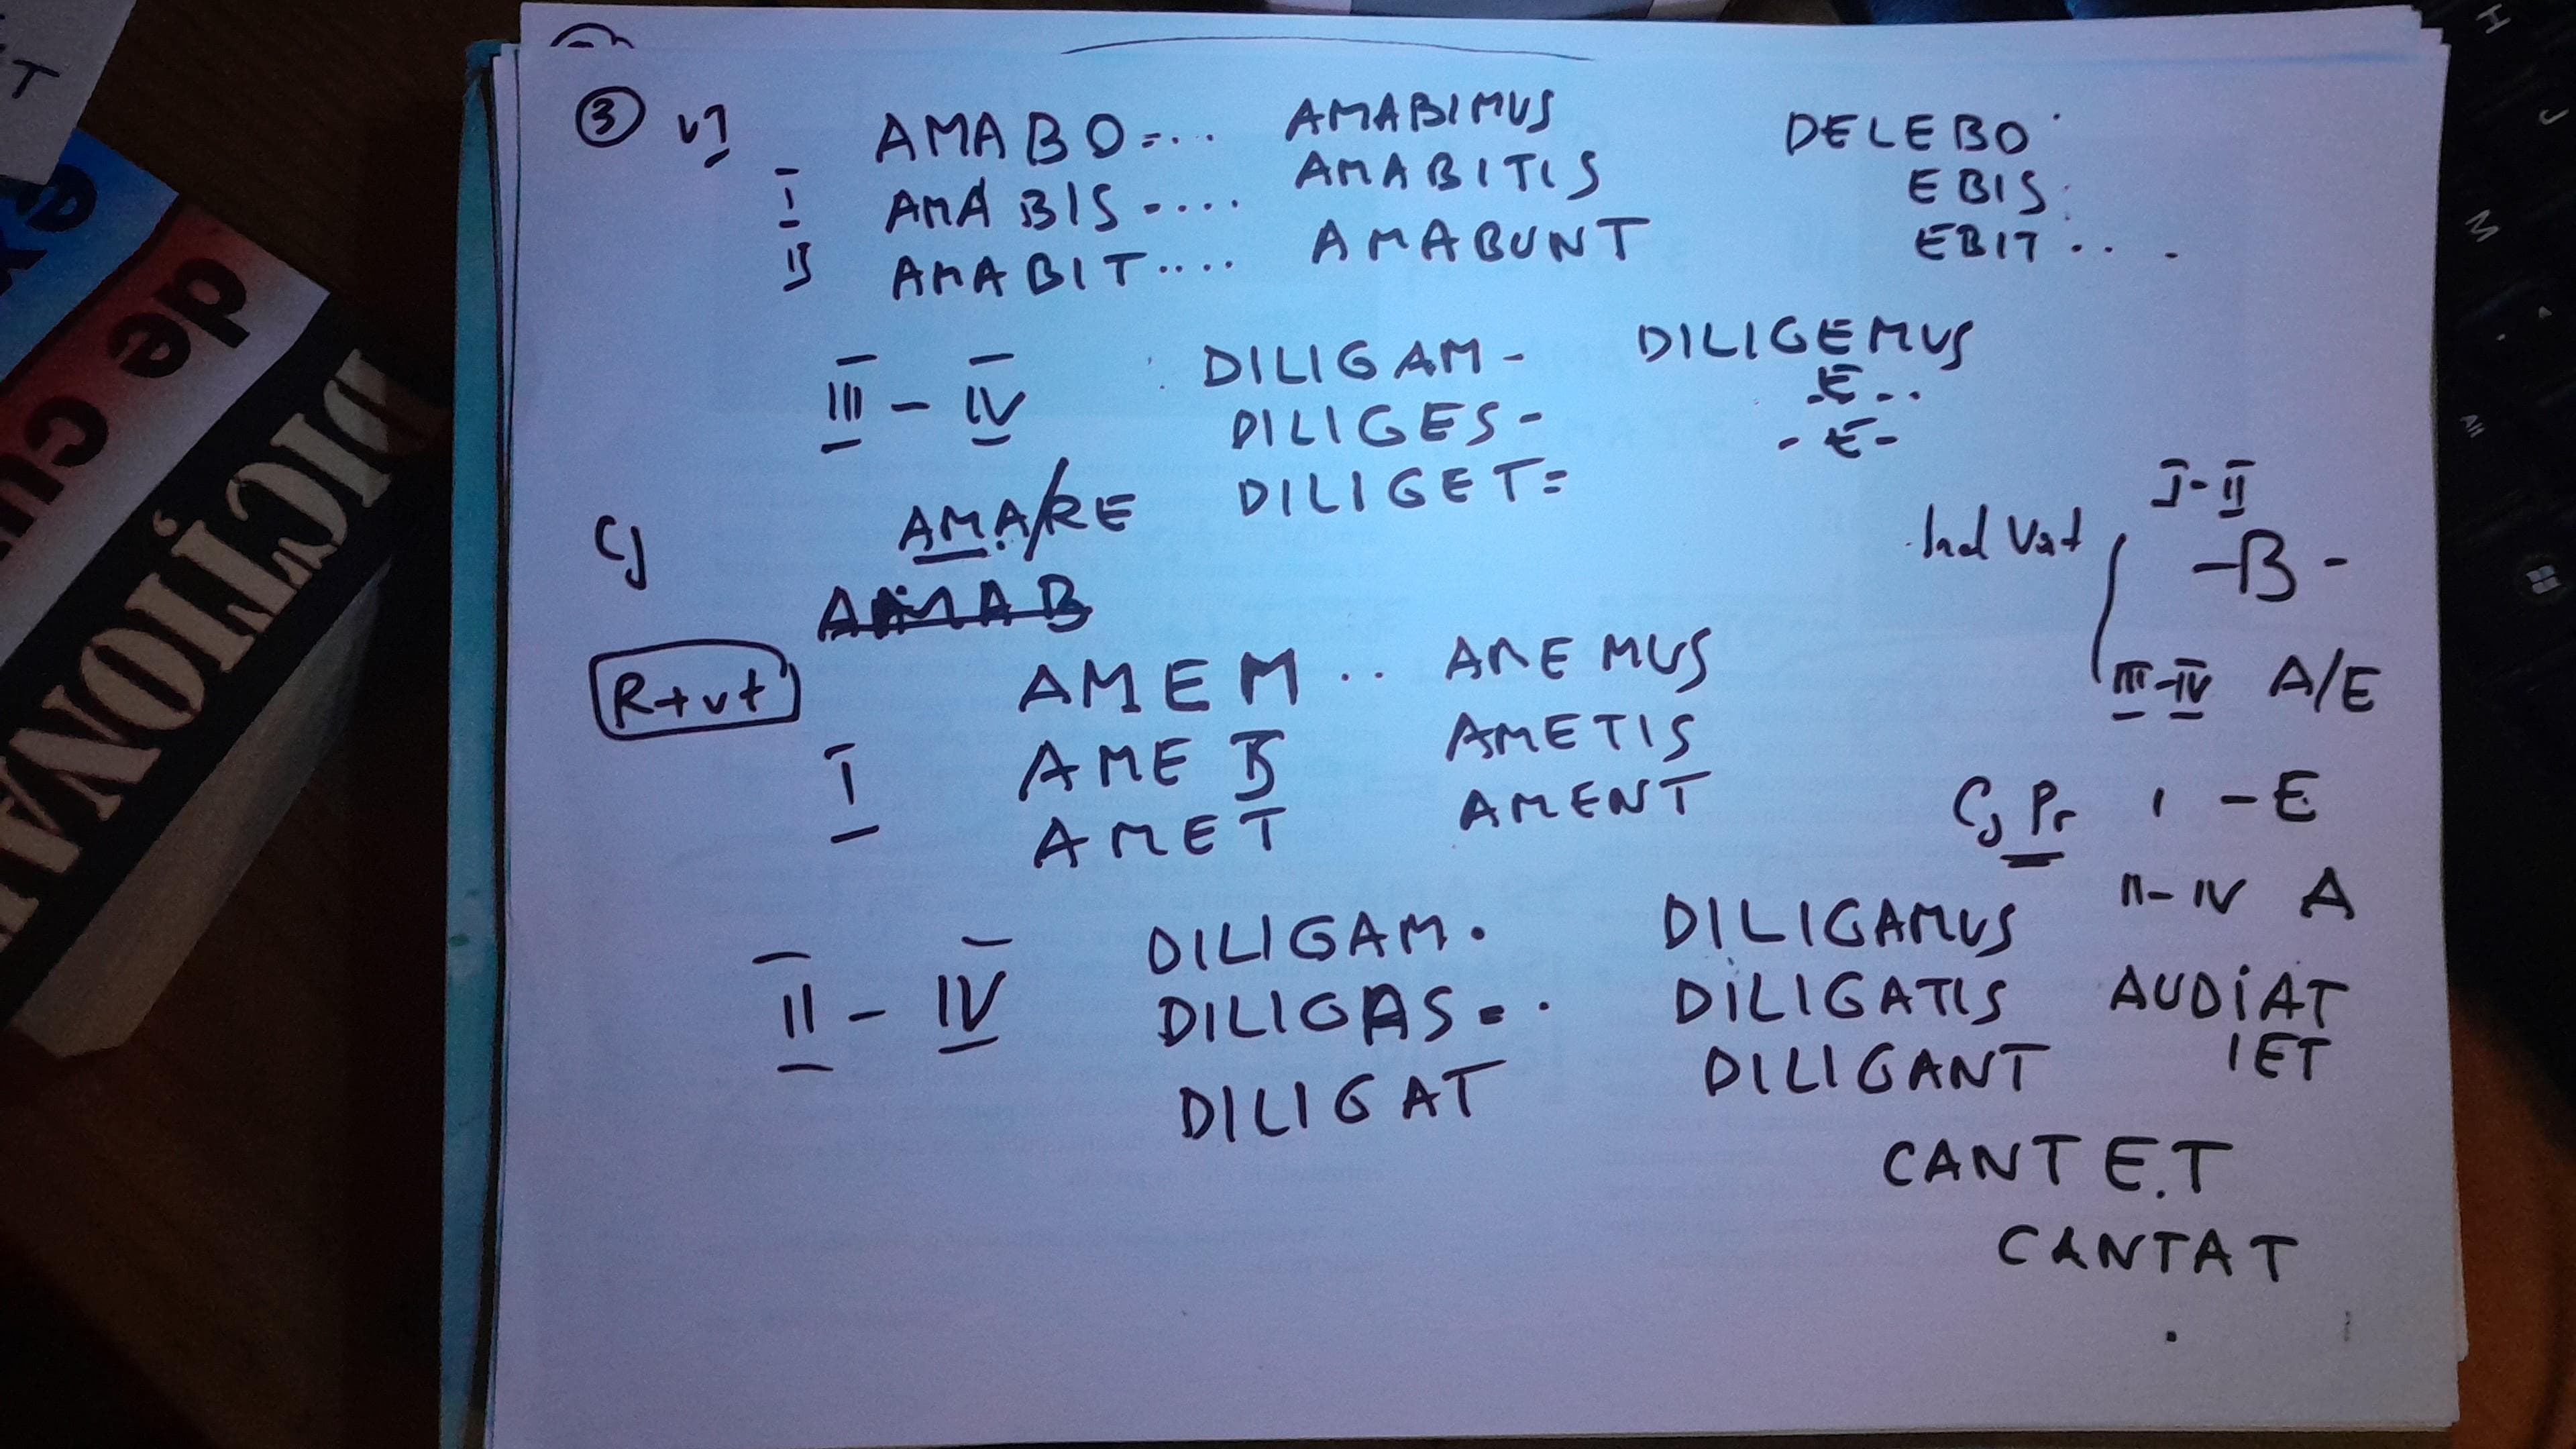 ③ VI AMABO=... AMABIMUS DELEBO
I AMABIS-.... AMABITIS EBIS
II AMABIT.... AMABUNT EBIT...
III - IV DILIGAM- DILIGEMUS
DILIGES- -E..
DILIGET= -E-
CJ AMA/RE
Ind Vt I-II -B-
III-IV A/E
AMAB
R+vt AMEM.. AMEMUS
I AMES AMETIS
AMET AMENT
CJ Pr I -E
II-IV A
II - IV DILIGAM. DILIGAMUS
DILIGAS=. DILIGATIS AUDIAT
DILIGAT DILIGANT IET
CANTE.T
CANTAT
DICȚIONA
de cu
T
H
J
M
Alt